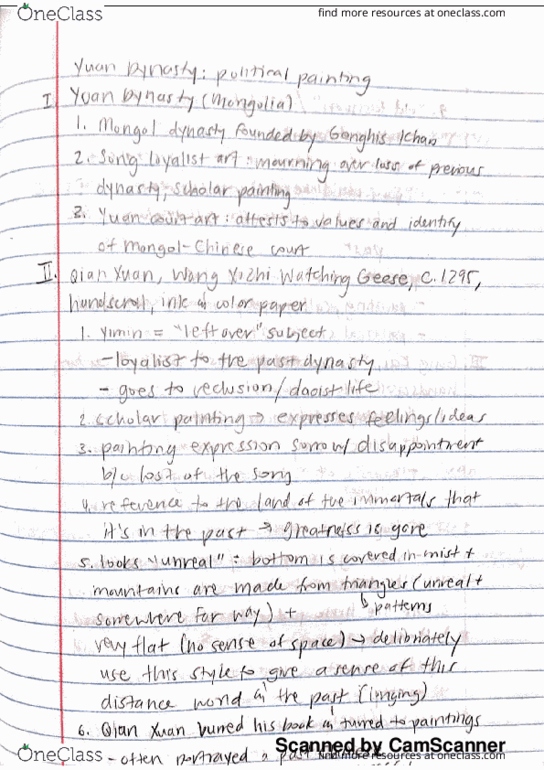 OneClass
find more resources at oneclass.com
Yuan Dynasty: political painting
I. Yuan Dynasty (Mongolia)
1. Mongol dynasty founded by Genghis Khan
2. Song loyalist art: mourning over loss of previous
dynasty, scholar painting
3. Yuan court art: attests to values and identify
of mongol-Chinese court
II. Qian Xuan, Wang Xizhi Watching Geese, C.1295,
handscroll, ink & color paper
1. Yimin = "left over" subject
-loyalist to the past dynasty
- goes to reclusion/daoist life
2. scholar painting → expresses feelings/ideas
3. painting expression sorrow/disappointment
b/c lost of the song
4. reference to the land of the immortals that
it's in the past → greatness is gone
5. looks "unreal": bottom is covered in mist +
mountains are made from triangles (unreal +
patterns
somewhere far way) +
very flat (no sense of space) → delibrately
use this style to give a sense of this
distance world & the past
6. Qian Xuan burned his book & turned to paintings
Scanned by CamScanner
OneClass
- often portrayed a past
find more resources at oneclass.com